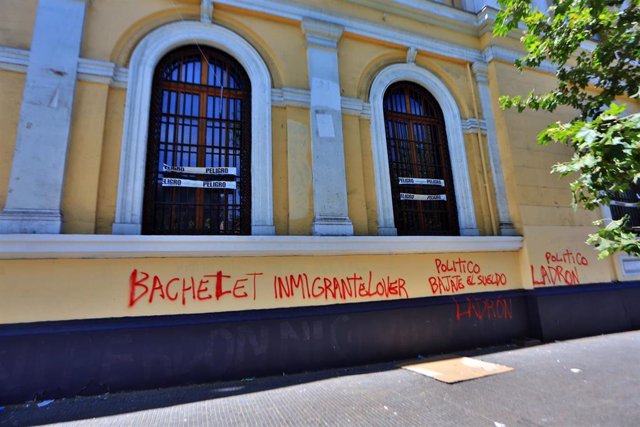 PELIGRO PELIGRO
PELIGRO
BACHELET INMIGRANTE LOVER
POLITICO
BAJATE EL SUELDO
LADRON
POLITICO
LADRON